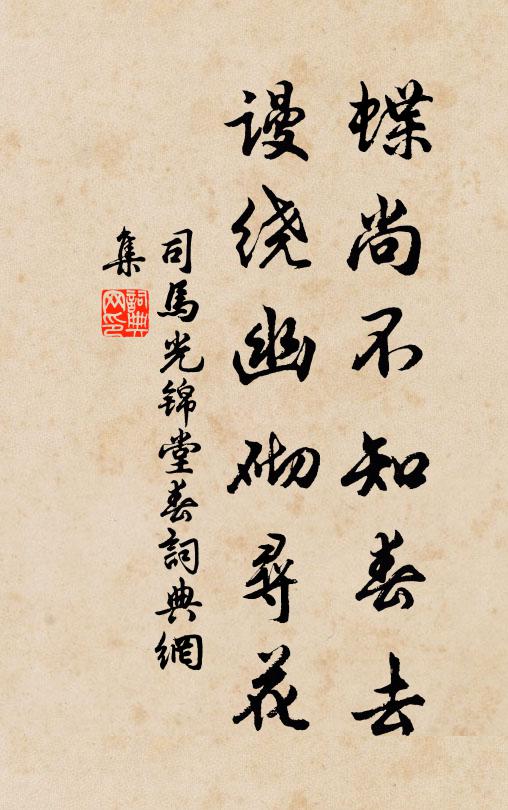 蝶尚不知春去
谩绕幽砌尋花
司馬光锦堂春詞典網
集
詞典网印